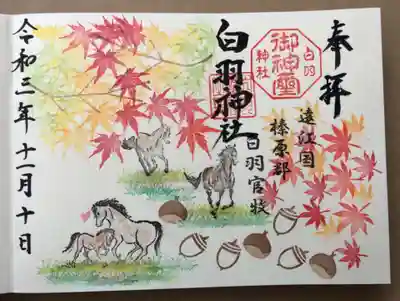 奉拝
白羽神社
御神璽
遠江国
榛原郡
白羽官牧
白羽神社
令和三年十一月十日